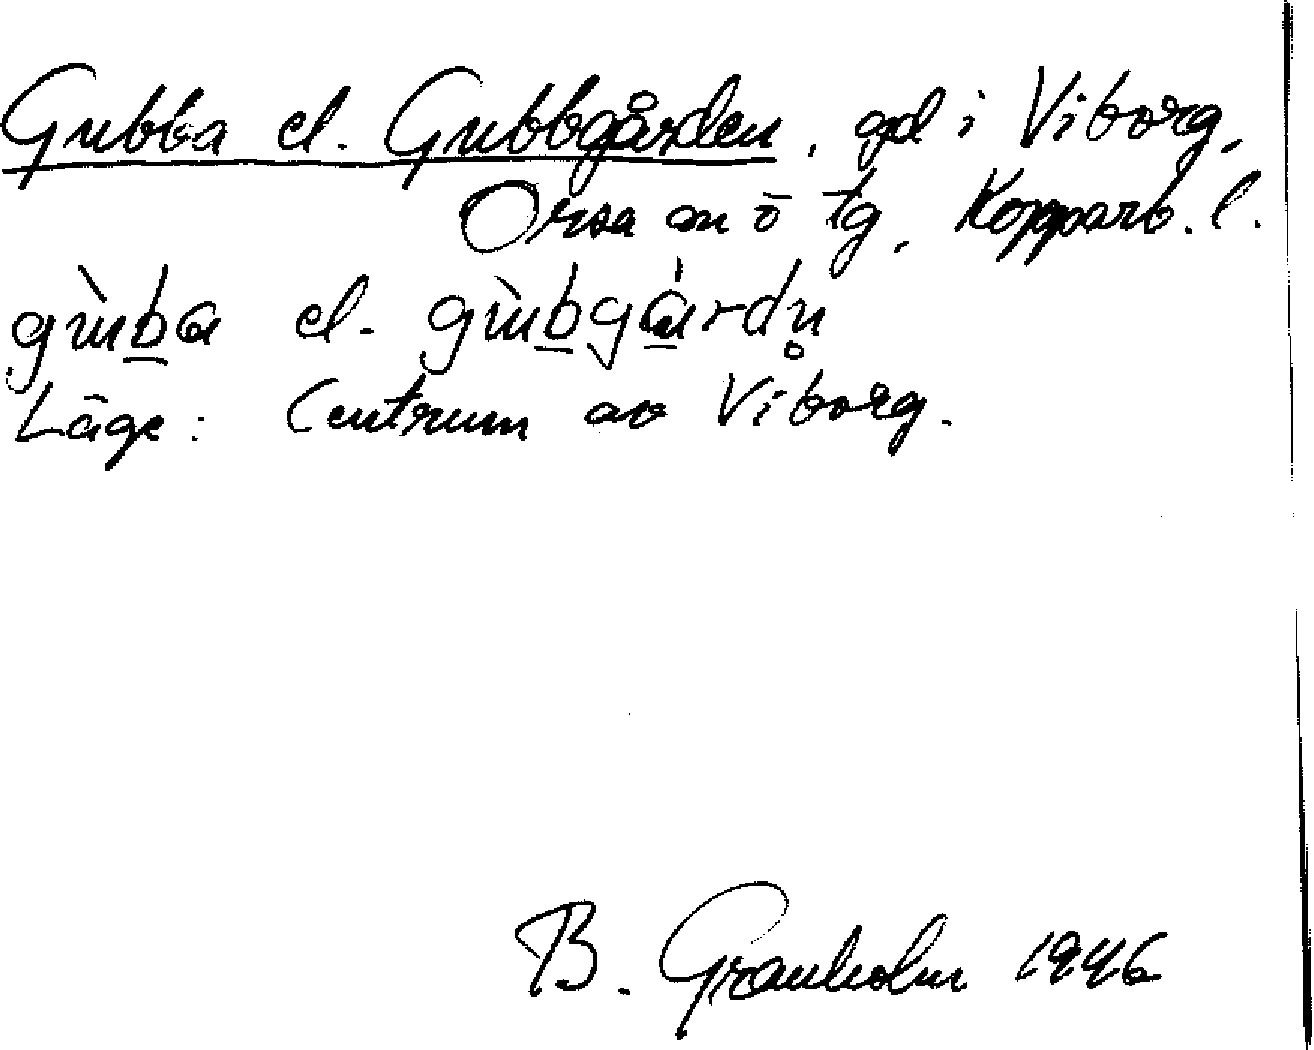 Gubba el. Gubbgården, gd i Viborg,
Orsa sn o tg, Kopparb. l.
gùb̲a el. gùb̲gá̲rdn̥
Läge: Centrum av Viborg.
B. Granholm 1946